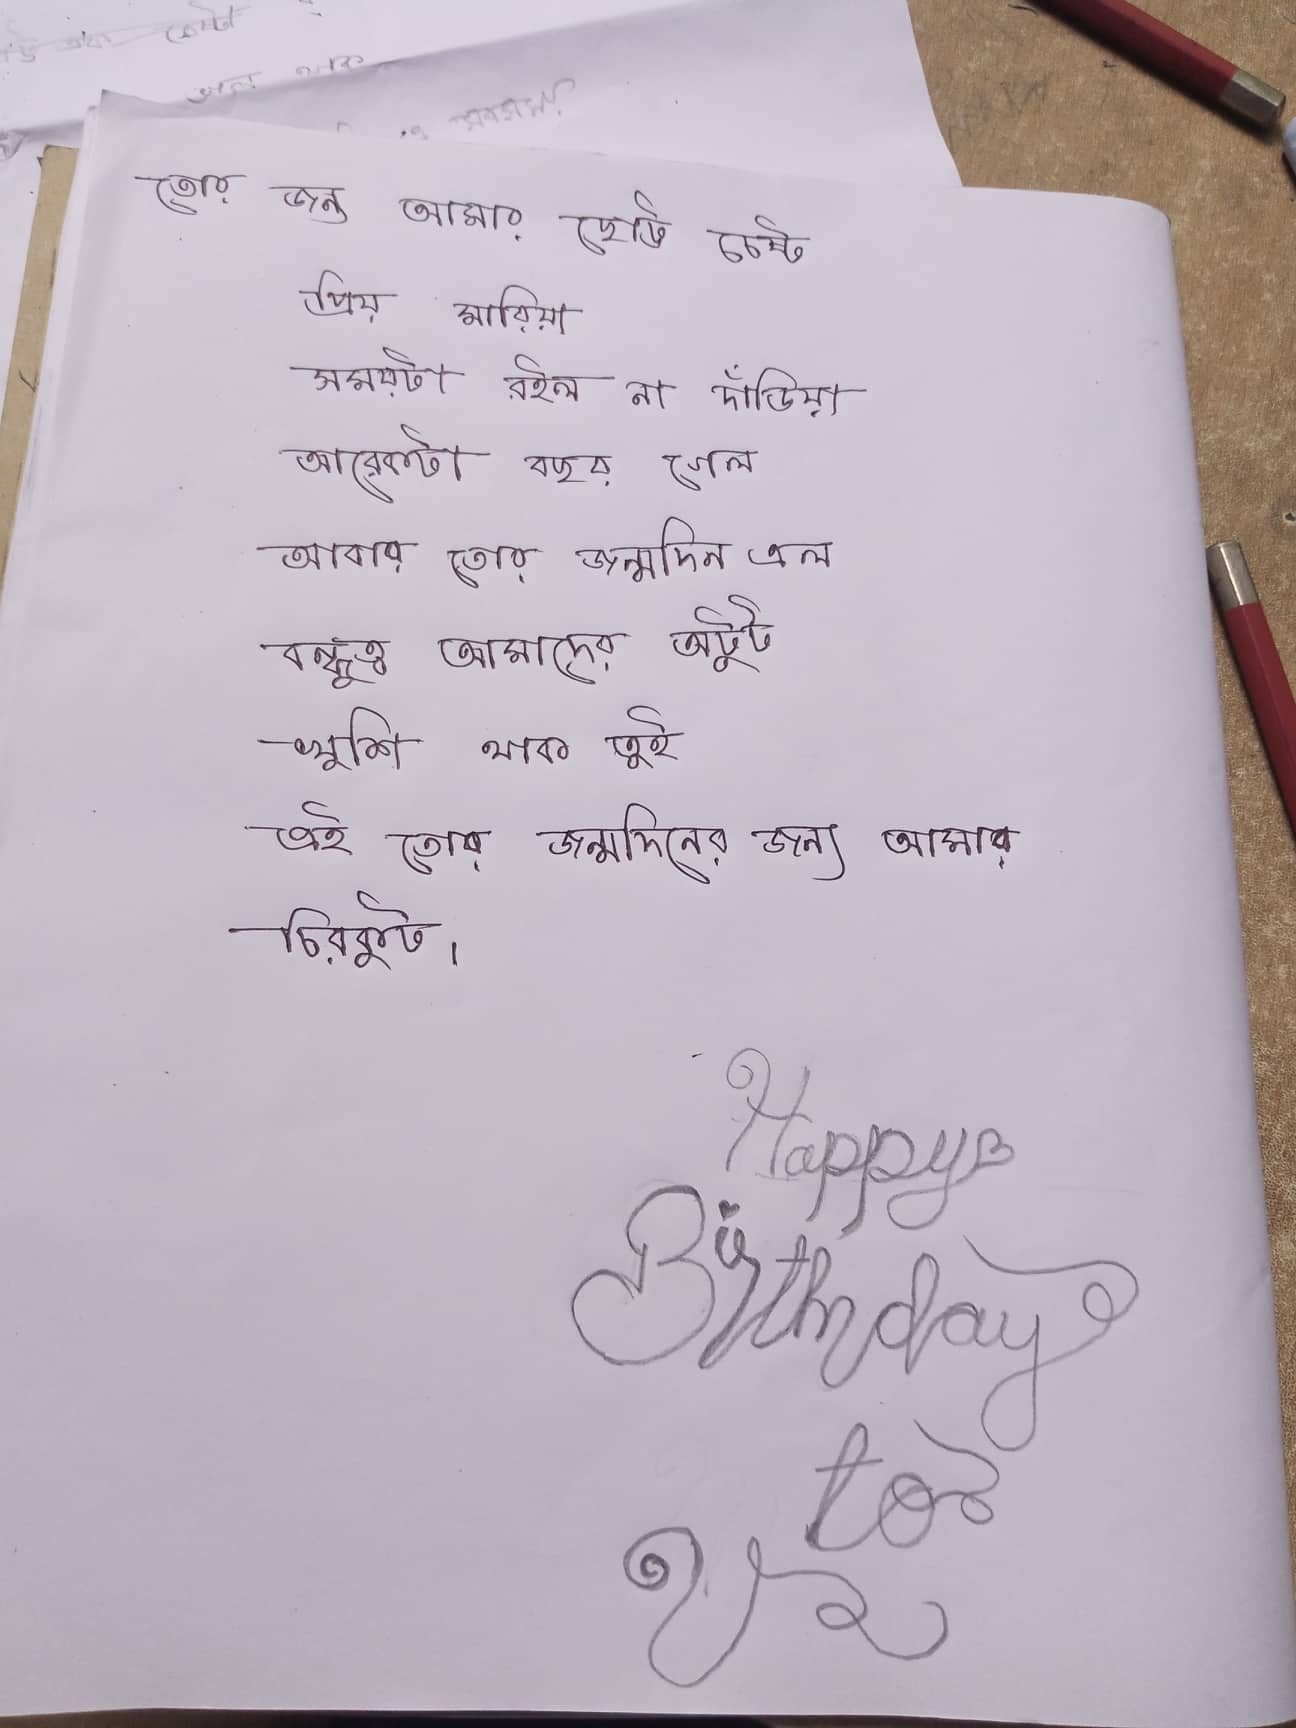 তোর জন্য আমার ছোট্ট চেষ্টা
প্রিয় মারিয়া
সময়টা রইল না দাঁড়িয়া
আরেকটা বছর গেল
আবার তোর জন্মদিন এল
বন্ধুত্ব আমাদের অটুট
খুশি থাক তুই
এই তোর জন্মদিনের জন্য আমার
চিরকুট।
Happy
Birthday
to